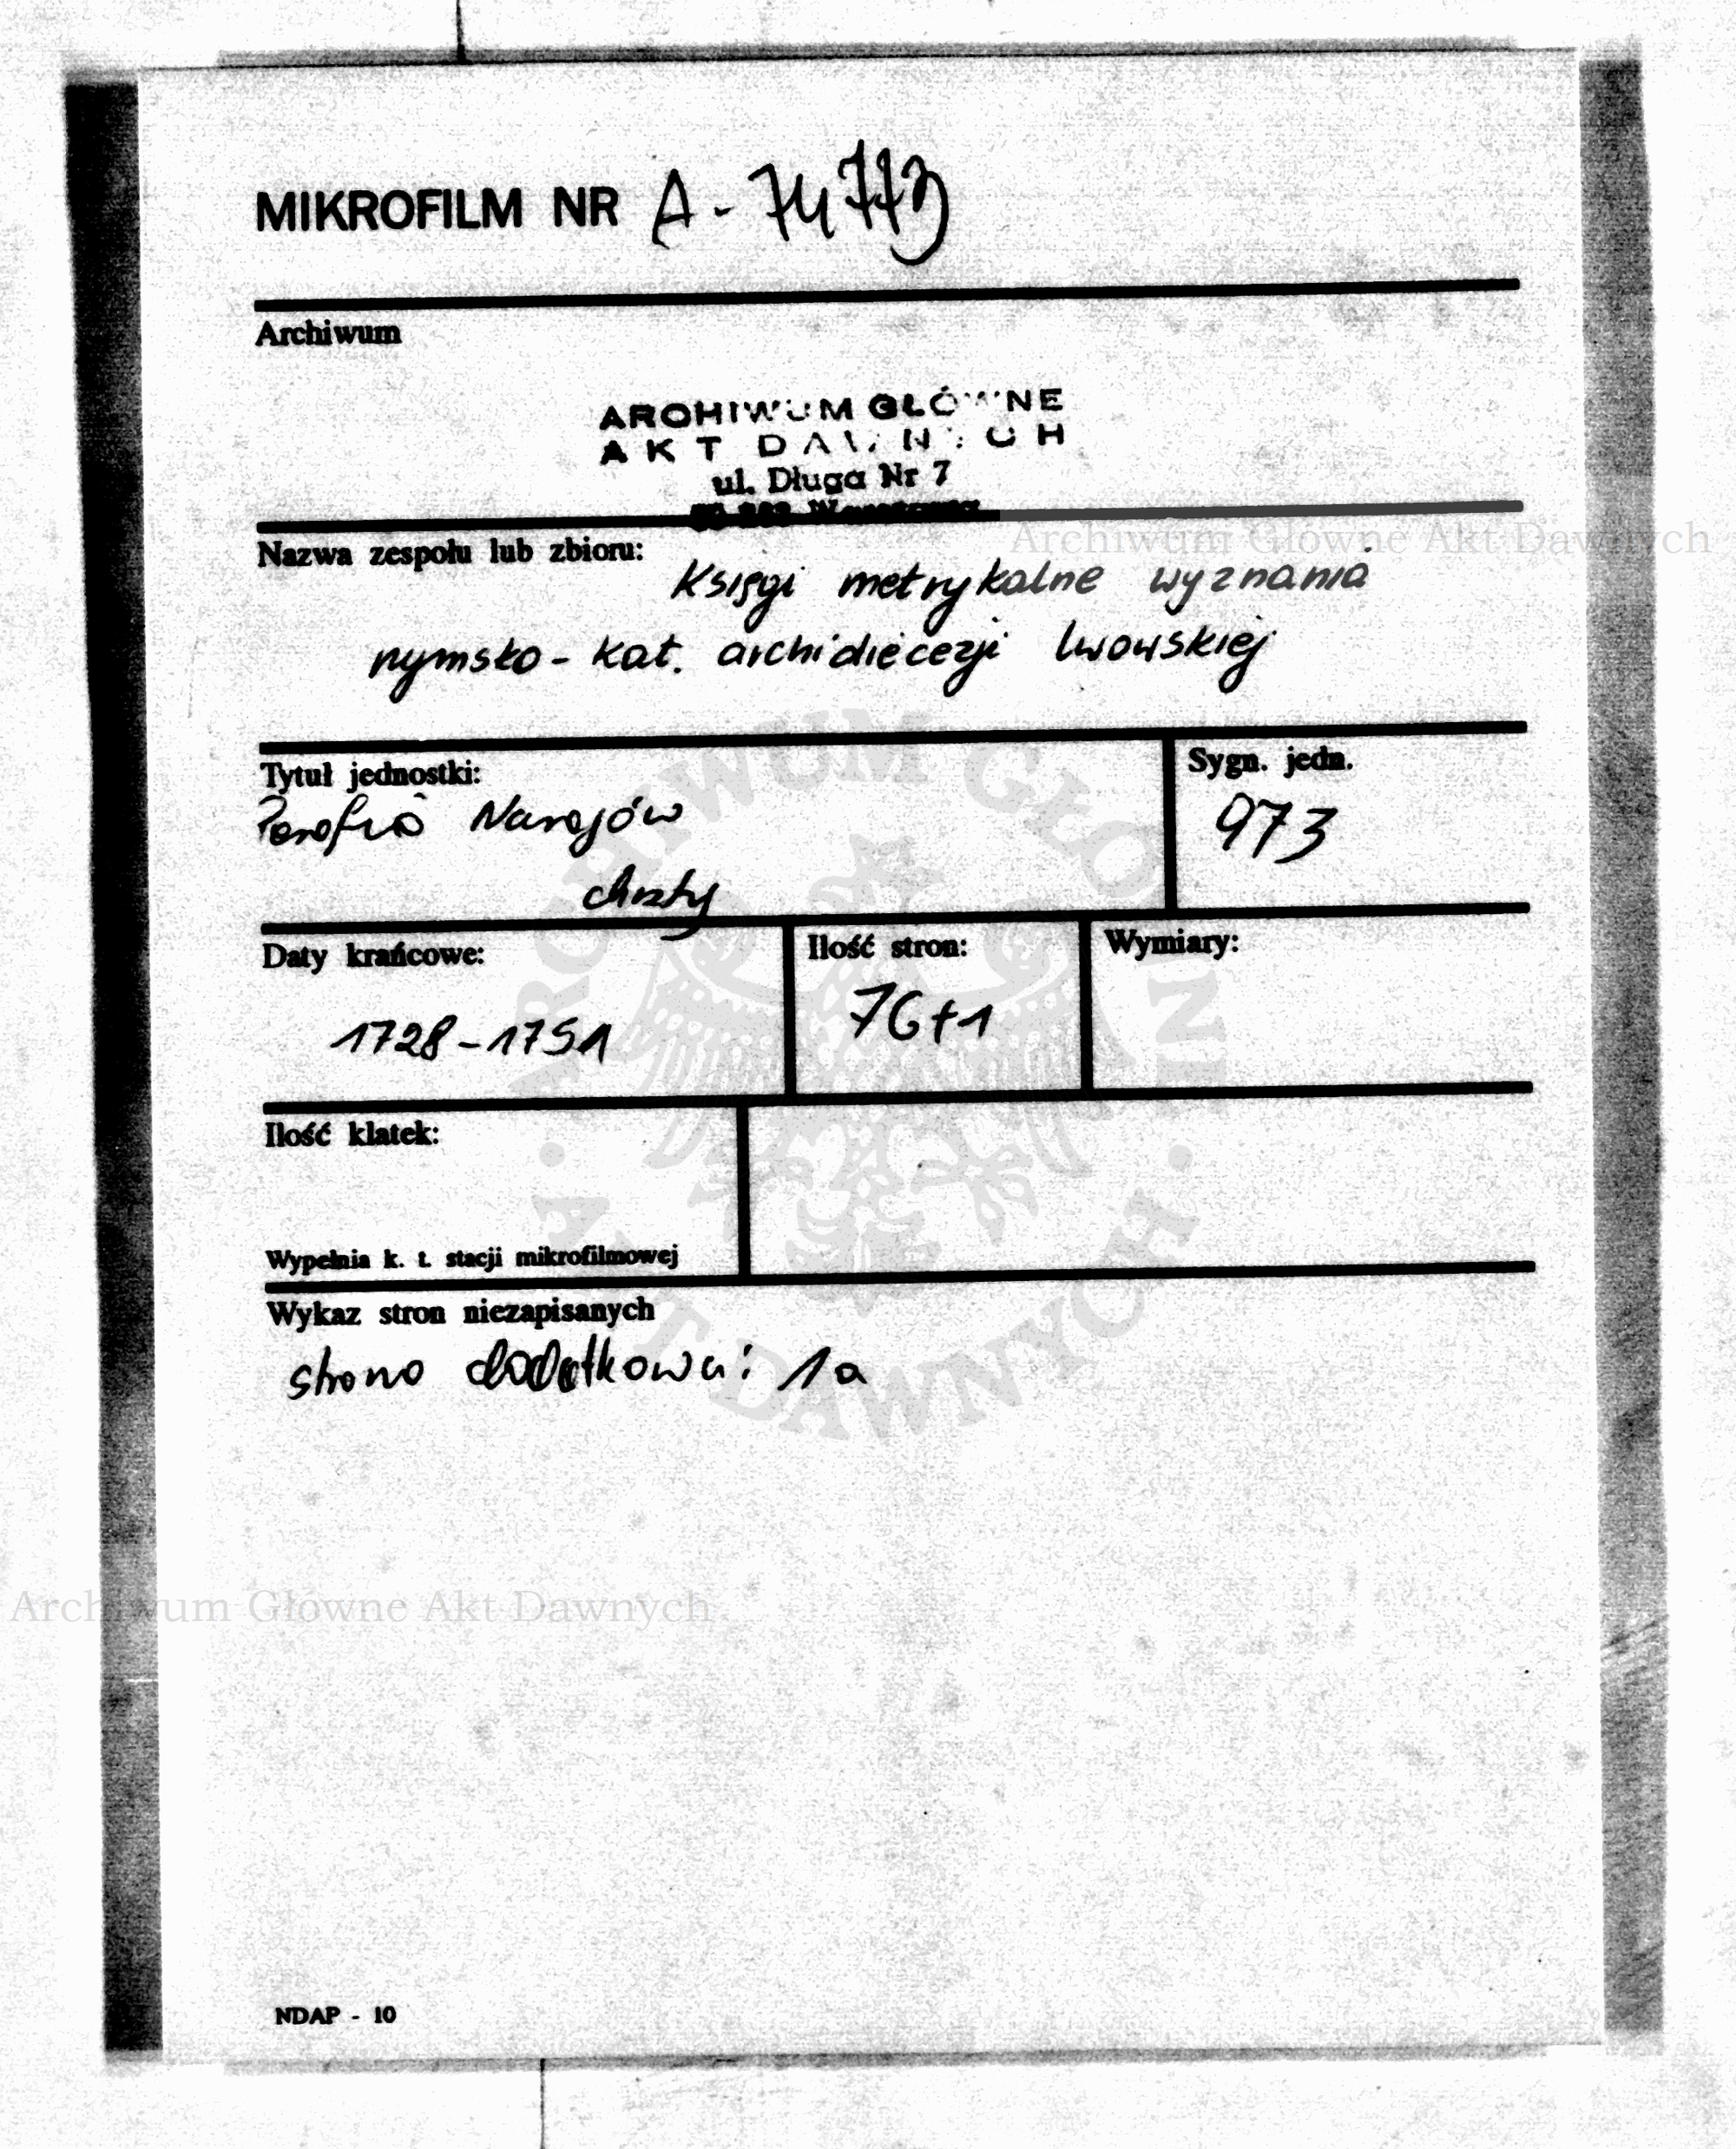 MIKROFILM NR A-74773
Archiwum
ARCHIWUM GŁÓWNE
AKT DAWNYCH
ul. Długa Nr 7
Warszawa
Archiwum Głowne Akt Dawnych
Nazwa zespołu lub zbioru: Księgi metrykalne wyznania
rzymsko-kat. archidiecezji lwowskiej
Tytuł jednostki:
Parafia Narajów
chrzty
Sygn. jedn.
973
Daty krańcowe:
1728-1751
Ilość stron:
76+1
Wymiary:
Ilość klatek:
Wypełnia k. t. stacji mikrofilmowej
Wykaz stron niezapisanych
strona dodatkowa: 1a
Archiwum Głowne Akt Dawnych
ARCHIWUM GŁÓWNE · AKT DAWNYCH ·
NDAP - 10